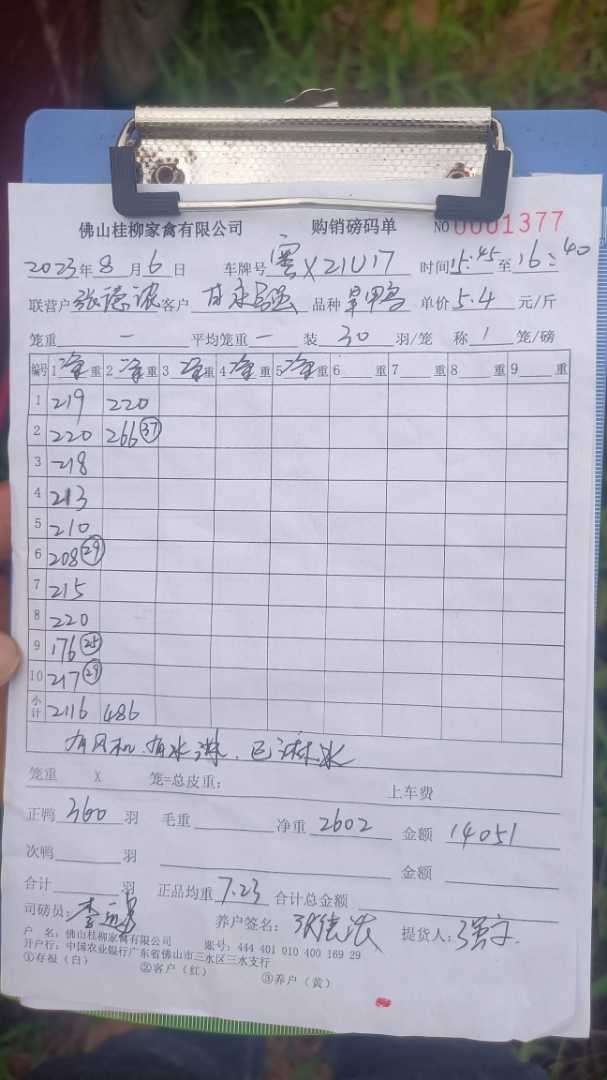 佛山桂柳家禽有限公司 购销磅码单 NO 0001377
2023年8月6日 车牌号 X21U17 时间15:45至16:40
联营户张德浓客户 品种旱甲鸟 单价5.4元/斤
笼重 一 平均笼重 一 装 30 羽/笼 称 1 笼/磅
编号 1净重 2净重 3净重 4净重 5净重 6 重 7 重 8 重 9 重
1 219 220
2 220 266 37
3 218
4 213
5 210
6 208 29
7 215
8 220
9 176 25
10 217 29
小计 2116 486
有风机、有水淋、已淋水
笼重 X 笼=总皮重: 上车费
正鸭 360 羽 毛重 净重 2602 金额 14051
次鸭 羽 金额
合计 羽 正品均重 7.23 合计总金额
司磅员: 养户签名: 张德浓 提货人:
户 名: 佛山桂柳家禽有限公司 账号: 444 401 010 400 169 29
开户行: 中国农业银行广东省佛山市三水区三水支行
①存根(白) ②客户(红) ③养户(黄)